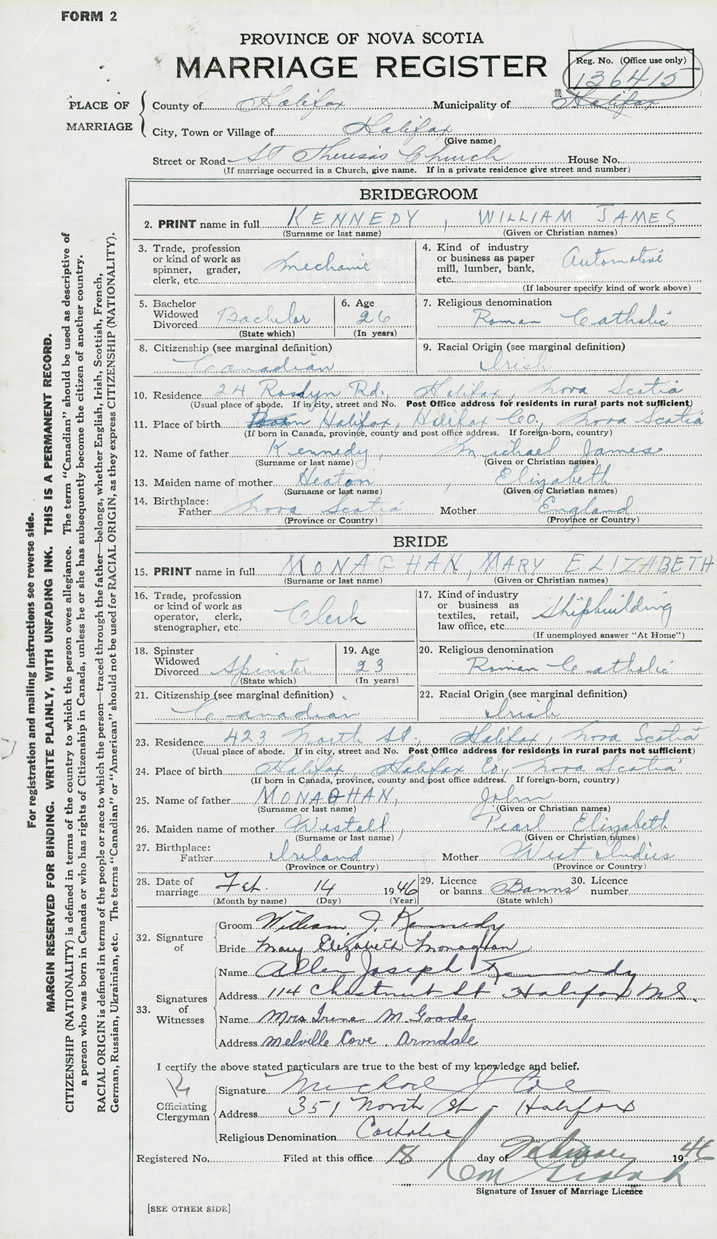 FORM 2
PROVINCE OF NOVA SCOTIA
MARRIAGE REGISTER
Reg. No. (Office use only)
136415
PLACE OF MARRIAGE
County of Halifax Municipality of Halifax
City, Town or Village of Halifax
(Give name)
Street or Road St Theresa's Church House No.
(If marriage occurred in a Church, give name. If in a private residence give street and number)
BRIDEGROOM
2. PRINT name in full KENNEDY, WILLIAM JAMES
(Surname or last name) (Given or Christian names)
3. Trade, profession or kind of work as spinner, grader, clerk, etc. Mechanic
4. Kind of industry or business as paper mill, lumber, bank, etc. Automotive
(If labourer specify kind of work above)
5. Bachelor Widowed Divorced Bachelor
(State which)
6. Age 26
(In years)
7. Religious denomination
Roman Catholic
8. Citizenship (see marginal definition)
Canadian
9. Racial Origin (see marginal definition)
Irish
10. Residence 24 Roslyn Rd., Halifax, Nova Scotia
(Usual place of abode. If in city, street and No. Post Office address for residents in rural parts not sufficient)
11. Place of birth Halifax, Halifax Co., Nova Scotia
(If born in Canada, province, county and post office address. If foreign-born, country)
12. Name of father Kennedy, Michael James
(Surname or last name) (Given or Christian names)
13. Maiden name of mother Heaton, Elizabeth
(Surname or last name) (Given or Christian names)
14. Birthplace: Father Nova Scotia Mother England
(Province or Country) (Province or Country)
BRIDE
15. PRINT name in full MONAGHAN, MARY ELIZABETH
(Surname or last name) (Given or Christian names)
16. Trade, profession or kind of work as operator, clerk, stenographer, etc Clerk
17. Kind of industry or business as textiles, retail, law office, etc. Shipbuilding
(If unemployed answer "At Home")
18. Spinster Widowed Divorced Spinster
(State which)
19. Age 23
(In years)
20. Religious denomination
Roman Catholic
21. Citizenship (see marginal definition)
Canadian
22. Racial Origin (see marginal definition)
Irish
23. Residence 423 North St., Halifax, Nova Scotia
(Usual place of abode. If in city, street and No. Post Office address for residents in rural parts not sufficient)
24. Place of birth Halifax, Halifax Co., Nova Scotia
(If born in Canada, province, county and post office address. If foreign-born, country)
25. Name of father MONAGHAN, John
(Surname or last name) (Given or Christian names)
26. Maiden name of mother Westall, Pearl Elizabeth
(Surname or last name) (Given or Christian names)
27. Birthplace: Father Ireland Mother West Indies
(Province or Country) (Province or Country)
28. Date of marriage Feb. 14 1946
(Month by name) (Day) (Year)
29. Licence or banns Banns
(State which)
30. Licence number
32. Signature of
Groom William J. Kennedy
Bride Mary Elizabeth Monaghan
33. Signatures of Witnesses
Name Allen Joseph Kennedy
Address 114 Chestnut St Halifax N.S.
Name Mrs Irene M. Goode
Address Melville Cove. Armdale
I certify the above stated particulars are true to the best of my knowledge and belief.
Officiating Clergyman
Signature Michael J Cole
Address 351 North St - Halifax
Religious Denomination Catholic
Registered No. Filed at this office 18 day of February 1946
Signature of Issuer of Marriage Licence
[SEE OTHER SIDE]
For registration and mailing instructions see reverse side.
MARGIN RESERVED FOR BINDING. WRITE PLAINLY, WITH UNFADING INK. THIS IS A PERMANENT RECORD.
CITIZENSHIP (NATIONALITY) is defined in terms of the country to which the person owes allegiance. The term "Canadian" should be used as descriptive of
a person who was born in Canada or who has rights of Citizenship in Canada, unless he or she has subsequently become the citizen of another country.
RACIAL ORIGIN is defined in terms of the people or race to which the person—traced through the father—belongs, whether English, Irish, Scottish, French,
German, Russian, Ukrainian, etc. The terms "Canadian" or "American" should not be used for RACIAL ORIGIN, as they express CITIZENSHIP (NATIONALITY).